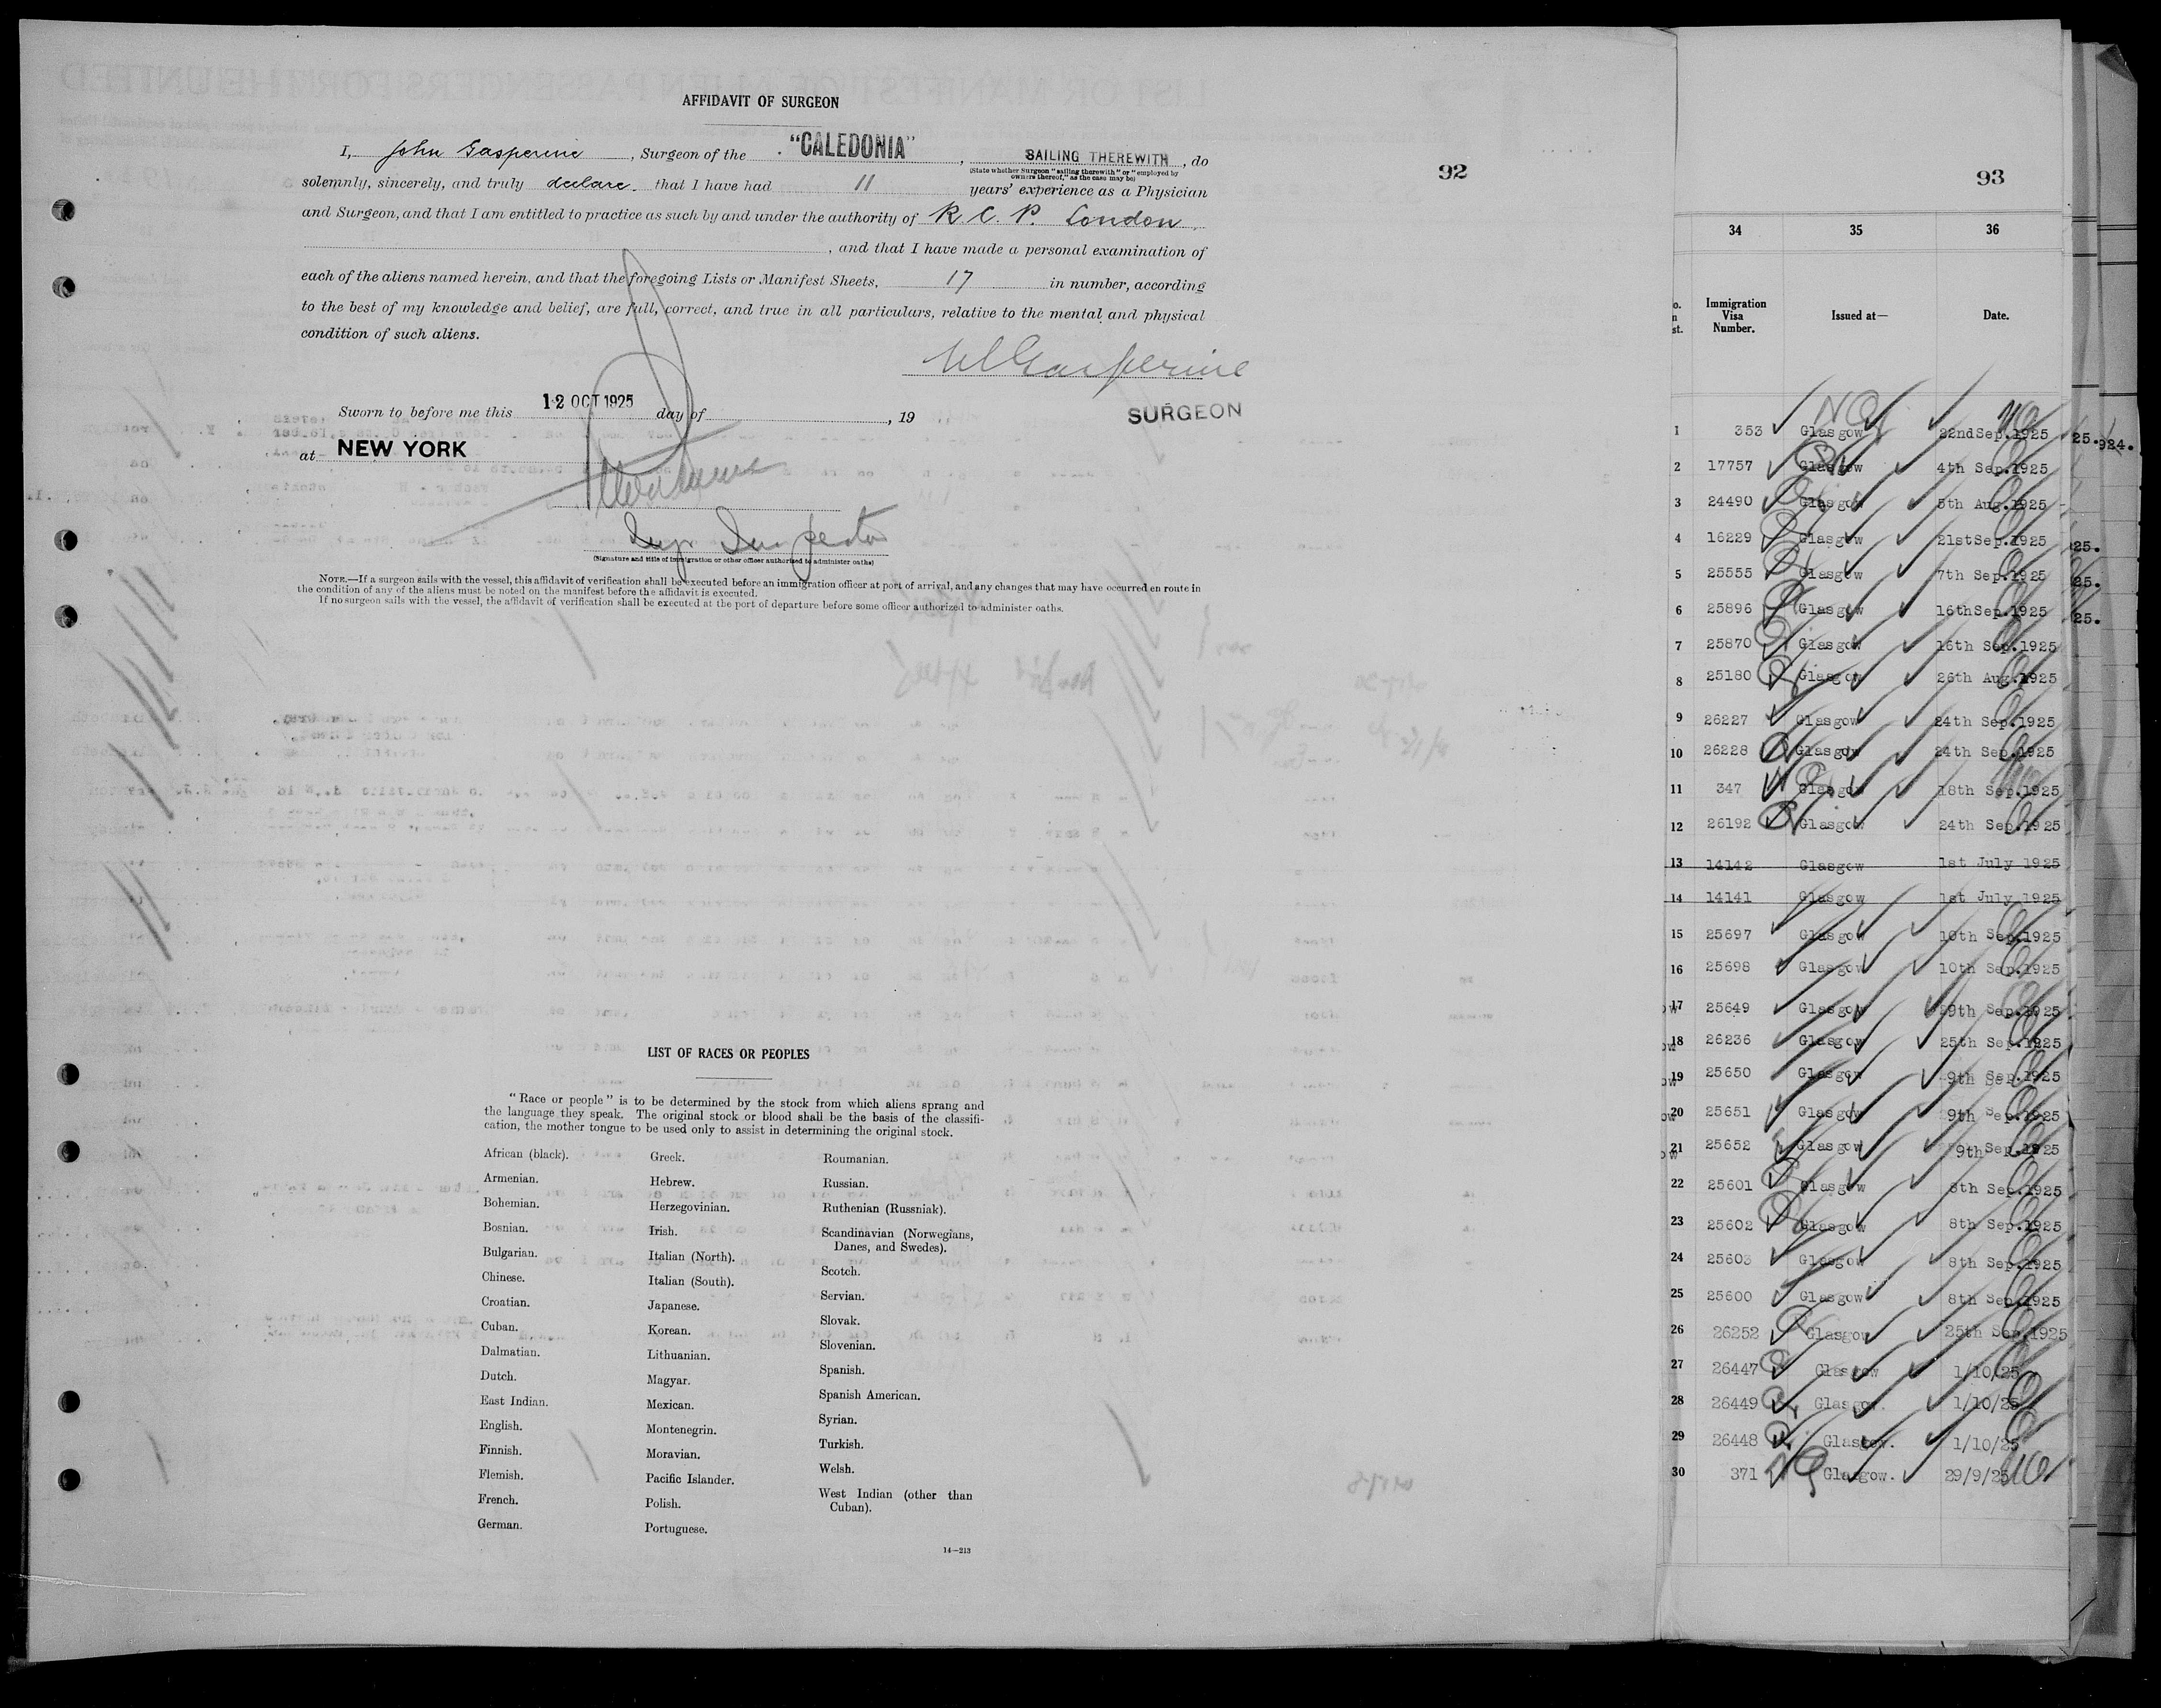 AFFIDAVIT OF SURGEON
I, John Gasperine, Surgeon of the "CALEDONIA", SAILING THEREWITH, do
(State whether Surgeon "sailing therewith" or "employed by
owners thereof," as the case may be)
solemnly, sincerely, and truly declare. that I have had 11 years' experience as a Physician
and Surgeon, and that I am entitled to practice as such by and under the authority of R. C. P. London
, and that I have made a personal examination of
each of the aliens named herein, and that the foregoing Lists or Manifest Sheets, 17 in number, according
to the best of my knowledge and belief, are full, correct, and true in all particulars, relative to the mental and physical
condition of such aliens.
Gasperine
SURGEON
Sworn to before me this 12 OCT 1925 day of , 19
at NEW YORK
Inspector
(Signature and title of immigration or other officer authorized to administer oaths)
NOTE.—If a surgeon sails with the vessel, this affidavit of verification shall be executed before an immigration officer at port of arrival, and any changes that may have occurred en route in
the condition of any of the aliens must be noted on the manifest before the affidavit is executed.
If no surgeon sails with the vessel, the affidavit of verification shall be executed at the port of departure before some officer authorized to administer oaths.
LIST OF RACES OR PEOPLES
"Race or people" is to be determined by the stock from which aliens sprang and
the language they speak. The original stock or blood shall be the basis of the classifi-
cation, the mother tongue to be used only to assist in determining the original stock.
African (black).
Armenian.
Bohemian.
Bosnian.
Bulgarian.
Chinese.
Croatian.
Cuban.
Dalmatian.
Dutch.
East Indian.
English.
Finnish.
Flemish.
French.
German.
Greek.
Hebrew.
Herzegovinian.
Irish.
Italian (North).
Italian (South).
Japanese.
Korean.
Lithuanian.
Magyar.
Mexican.
Montenegrin.
Moravian.
Pacific Islander.
Polish.
Portuguese.
Roumanian.
Russian.
Ruthenian (Russniak).
Scandinavian (Norwegians,
Danes, and Swedes).
Scotch.
Servian.
Slovak.
Slovenian.
Spanish.
Spanish American.
Syrian.
Turkish.
Welsh.
West Indian (other than
Cuban).
14—213
92
93
34 35 36
Immigration
Visa
Number.
Issued at—
Date.
1 353 Glasgow 22nd Sep. 1925
2 17757 Glasgow 4th Sep. 1925
3 24490 Glasgow 5th Aug. 1925
4 16229 Glasgow 21st Sep. 1925
5 25555 Glasgow 7th Sep. 1925
6 25896 Glasgow 16th Sep. 1925
7 25870 Glasgow 16th Sep. 1925
8 25180 Glasgow 26th Aug. 1925
9 26227 Glasgow 24th Sep. 1925
10 26228 Glasgow 24th Sep. 1925
11 347 Glasgow 18th Sep. 1925
12 26192 Glasgow 24th Sep. 1925
13 14142 Glasgow 1st July 1925
14 14141 Glasgow 1st July 1925
15 25697 Glasgow 10th Sep. 1925
16 25698 Glasgow 10th Sep. 1925
17 25649 Glasgow Sep. 1925
18 26236 Glasgow 25th Sep. 1925
19 25650 Glasgow 9th Sep. 1925
20 25651 Glasgow 9th Sep. 1925
21 25652 Glasgow 9th Sep. 1925
22 25601 Glasgow 8th Sep. 1925
23 25602 Glasgow 8th Sep. 1925
24 25603 Glasgow 8th Sep. 1925
25 25600 Glasgow 8th Sep. 1925
26 26252 Glasgow 25th Sep. 1925
27 26447 Glasgow 1/10/25
28 26449 Glasgow. 1/10/25
29 26448 Glasgow. 1/10/25
30 371 Glasgow. 29/9/25
25.
924.
25.
25.
25.